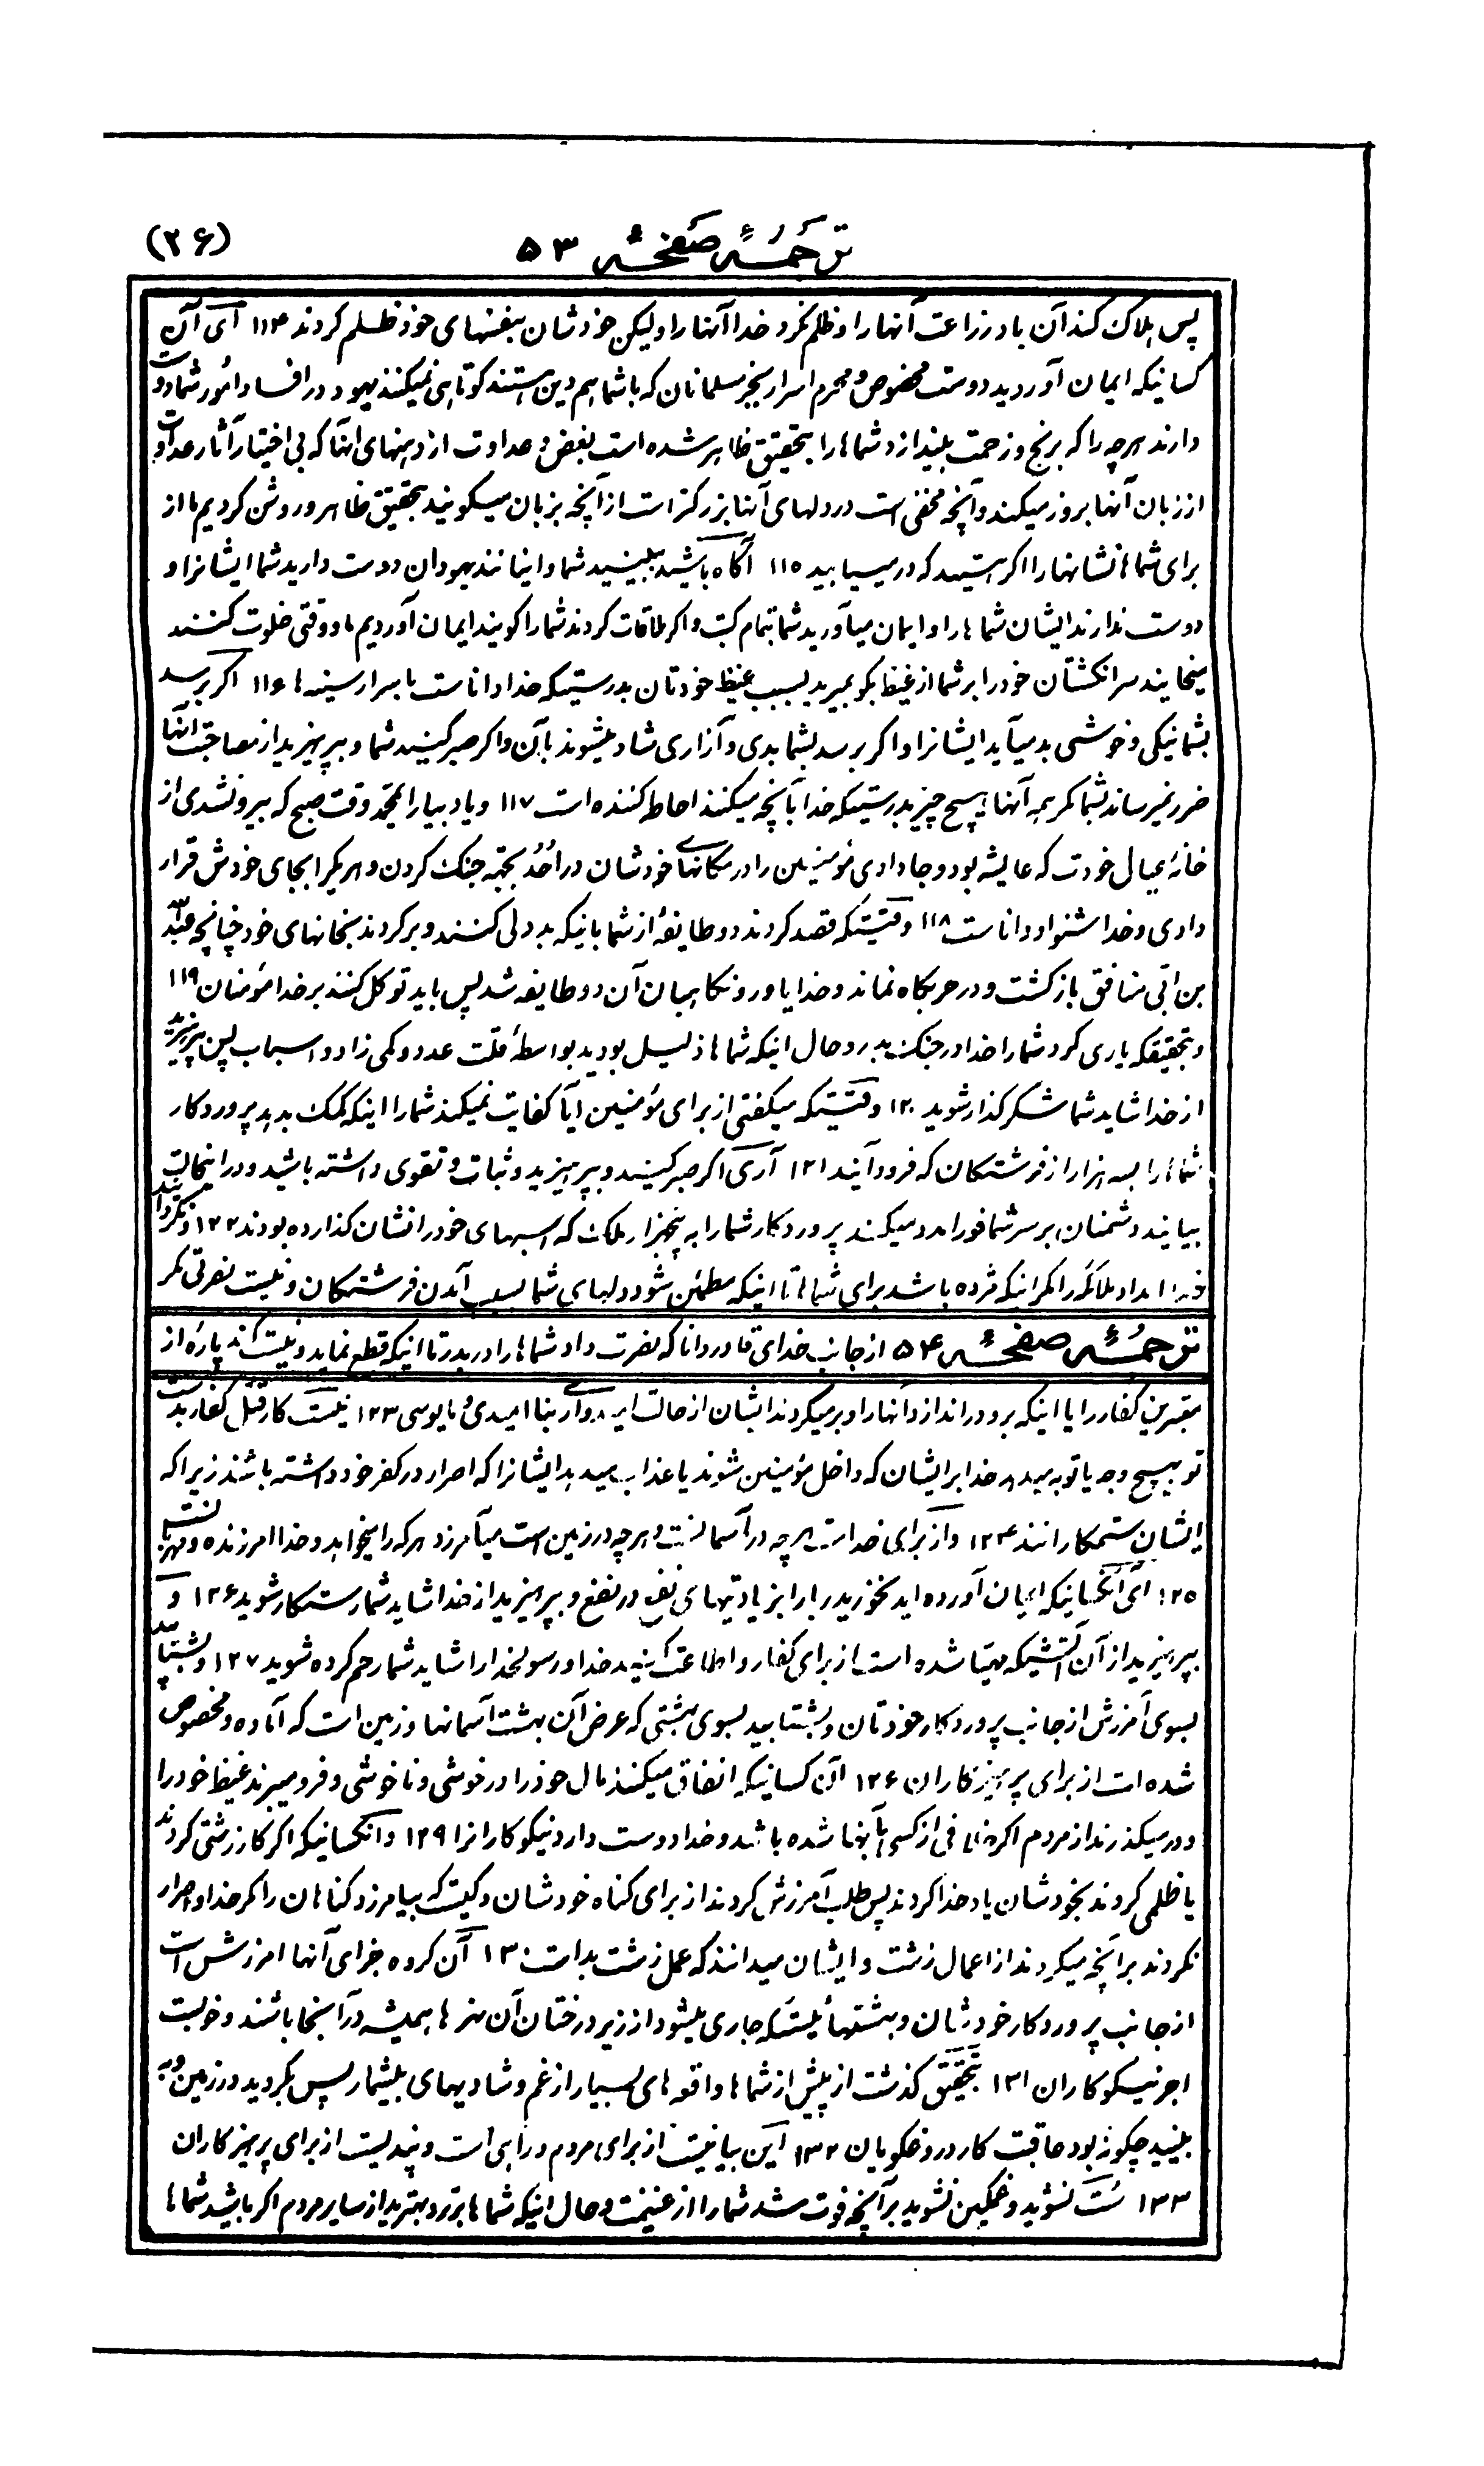 ترجمهٔ صفحهٔ ۵۳ (۲۶)
پس هلاک کند آن باد زراعت آنها را و ظلم نکرد خدا آنها را ولیکن خودشان بنفسهای خود ظلم کردند ۱۱۴ ای آن
کسانیکه ایمان آوردید دوست مخصوص و محرم اسرار بجز مسلمانان که با شما هم دین هستند کوتاهی نمیکنند یهود در افساد امور شما دوست
دارند هرچه را که برنج و زحمت بیندازد شماها را بتحقیق ظاهر شده است بغض و عداوت از دهنهای انها که بی اختیار آثار عداوت
از زبان آنها بروز میکند و آنچه مخفی است در دلهای آنها بزرگتر است از آنچه بزبان میگویند بتحقیق ظاهر و روشن کردیم ما از
برای شماها نشانها را اگر هستید که درمییابید ۱۱۵ آگاه باشید ببینید شما و اینانند یهودان دوست دارید شما ایشانرا و
دوست ندارند ایشان شماها را و ایمان میآورید شما بتمام کتب و اگر ملاقات کردند شما را گویند ایمان آوردیم ما و وقتی خلوت کنند
میخایند سرانگشتان خود را بر شما از غیظ بگو بمیرید بسبب غیظ خودتان بدرستیکه خدا داناست باسرار سینه ها ۱۱۶ اگر برسد
بشما نیکی و خوشی بد میآید ایشانرا و اگر برسد بشما بدی و آزاری شاد میشوند بآن و اگر صبر کنید شما و بپرهیزید از مصاحبت انها
ضرر نمیرساند بشما مکر همه آنها هیچ چیز بدرستیکه خدا بآنچه میکنند احاطه کننده است ۱۱۷ و یاد بیار ایمحمد وقت صبح که بیرونشدی از
خانهٔ عیال خودت که عایشه بود و جا دادی مؤمنین را در مکانهای خودشان در اُحُد بجهة جنک کردن و هر یکرا بجای خودش قرار
دادی و خدا شنوا و داناست ۱۱۸ وقتیکه قصد کردند دو طایفهٔ از شما باینکه بد دلی کنند و برگردند بخانهای خود چنانچه عبدالله
بن اُبّی منافق بازگشت و در حربگاه نماند و خدا یاور و نگاهبان آن دو طایفه شد پس باید توکل کنند بر خدا مؤمنان ۱۱۹
و بتحقیقکه یاری کرد شما را خدا در جنک بدر و حال اینکه شماها ذلیل بودید بواسطهٔ قلت عدد و کمی زاد و اسباب پس بپرهیزید
از خدا شاید شما شکر گذار شوید ۱۲۰ وقتیکه میگفتی از برای مؤمنین آیا کفایت نمیکند شما را اینکه کمک بدهد پروردگار
شماها را بسه هزار از فرشتگان که فرود آیند ۱۲۱ آری اگر صبر کنید و بپرهیزید و ثبات و تقوی داشته باشید و در اینحالت
بیایند دشمنان بر سر شما فورا مدد میکند پروردگار شما را به پنجهزار ملک که اسبهای خود را نشان گذارده بودند ۱۲۲ و نگردانید
خدا امداد ملائکه را مگر اینکه مژده باشد برای شماها تا اینکه مطمئن شود دلهای شما بسبب آمدن فرشتگان و نیست نصرتی مگر
ترجمهٔ صفحهٔ ۵۴ از جانب خدای قادر دانا که نصرت داد شماها را در بدر تا اینکه قطع نماید و نیست کند پارهٔ از
معتبرین کفار را یا اینکه برو در اندازد آنها را و برمیگردند ایشان از حالت امیدواری بنا امیدی و مایوسی ۱۲۳ نیست کار قتل کفار بدست
تو بهیچ وجه یا توبه میدهد خدا بر ایشان که داخل مؤمنین شوند یا عذاب میدهد ایشانرا که اصرار در کفر خود داشته باشند زیرا که
ایشان ستمکارانند ۱۲۴ و از برای خداست هرچه در آسمانست و هرچه در زمین است میآمرزد هر که را میخواهد و خدا امرزنده و مهربانست
۱۲۵ ای آنکسانیکه ایمان آورده اید نخورید ربا را بزیادتیهای نفع در نفع و بپرهیزید از خدا شاید شما رستگار شوید ۱۲۶ و
بپرهیزید از آن آتشیکه مهیا شده است از برای کفار و اطاعت کنید خدا و رسولخدا را شاید شما رحم کرده شوید ۱۲۷ و بشتابید
بسوی آمرزش از جانب پروردگار خودتان و بشتابید بسوی بهشتی که عرض آن بهشت آسمانها و زمین است که آماده و مخصوص
شده است از برای پرهیزکاران ۱۲۶ آن کسانیکه انفاق میکنند مال خود را در خوشی و ناخوشی و فرو میبرند غیظ خود را
و درمیگذرند از مردم اگر خلافی از کسی بآنها شده باشد و خدا دوست دارد نیکوکارانرا ۱۲۹ و آنکسانیکه اگر کار زشتی کردند
یا ظلمی کردند بخودشان یاد خدا کردند پس طلب آمرزش کردند از برای گناه خودشان و کیست که بیامرزد گناهان را مگر خدا و اصرار
نکردند بر آنچه میکردند از اعمال زشت و ایشان میدانند که عمل زشت بد است ۱۳۰ آن گروه جزای آنها امرزش است
از جانب پروردگار خودشان و بهشتهائیستکه جاری میشود از زیر درختان آن نهرها همیشه در آنجا باشند و خوبست
اجر نیکوکاران ۱۳۱ بتحقیق گذشت از پیش از شماها واقعه های بسیار از غم و شادیهای بیشمار پس بگردید در زمین و به
بینید چگونه بود عاقبت کار دروغگویان ۱۳۲ این بیانیست از برای مردم و راهی است و پندیست از برای پرهیزکاران
۱۳۳ سست نشوید و غمگین نشوید بر آنچه فوت شد شما را از غنیمت و حال اینکه شماها برتر و بهترید از سایر مردم اگر باشید شماها